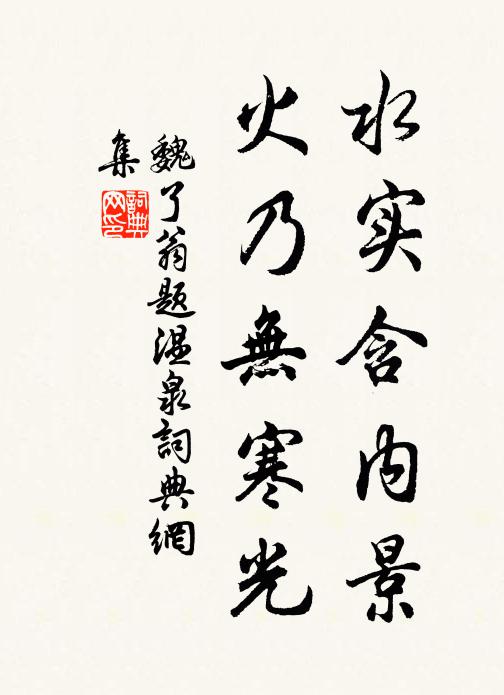 水实含内景
火乃無寒光
魏了翁题温泉詞典網
集
詞典
网印